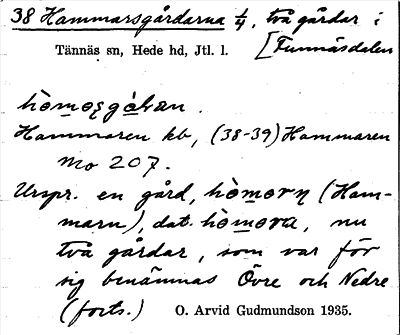 38 Hammarsgårdarna 1/4, två gårdar i
Tännäs sn, Hede hd, Jtl. l. [Funnäsdalen
hòmosgàḷan.
Hammaren kb, (38-39) Hammaren
mo 207.
Urspr. en gård, hòmorn (Ham-
marn), dat. hòmora, nu
två gårdar, som var för
sig benämnas Övre och Nedre
(forts.) O. Arvid Gudmundson 1935.